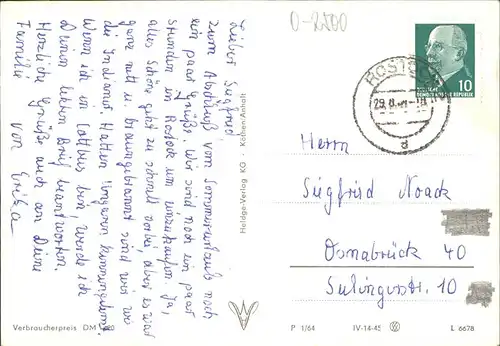 0-2500
Lieber Siegfried!
Zum Abschluß vom Sommerurlaub noch
ein paar Grüße. Wir sind noch ein paar
Stunden in Rostock um einzukaufen. Ja,
alles Schöne geht zu schnell vorbei aber es war
ganz toll u. braungebrannt sind wir wie
die Indianer. Hatten
Wenn ich in Cottbus bin, werde ich
Deinen lieben Brief beantworten.
Herzliche Grüße auch an Deine
Familie von Erika
Heldge-Verlag KG · Köthen-Anhalt
DEUTSCHE
DEMOKRATISCHE REPUBLIK
10
ROSTOCK
d
Herrn
Siegfried Noack
Osnabrück 40
Sulingerstr. 10
Verbraucherpreis DM
P 1/64
IV-14-45
L 6678